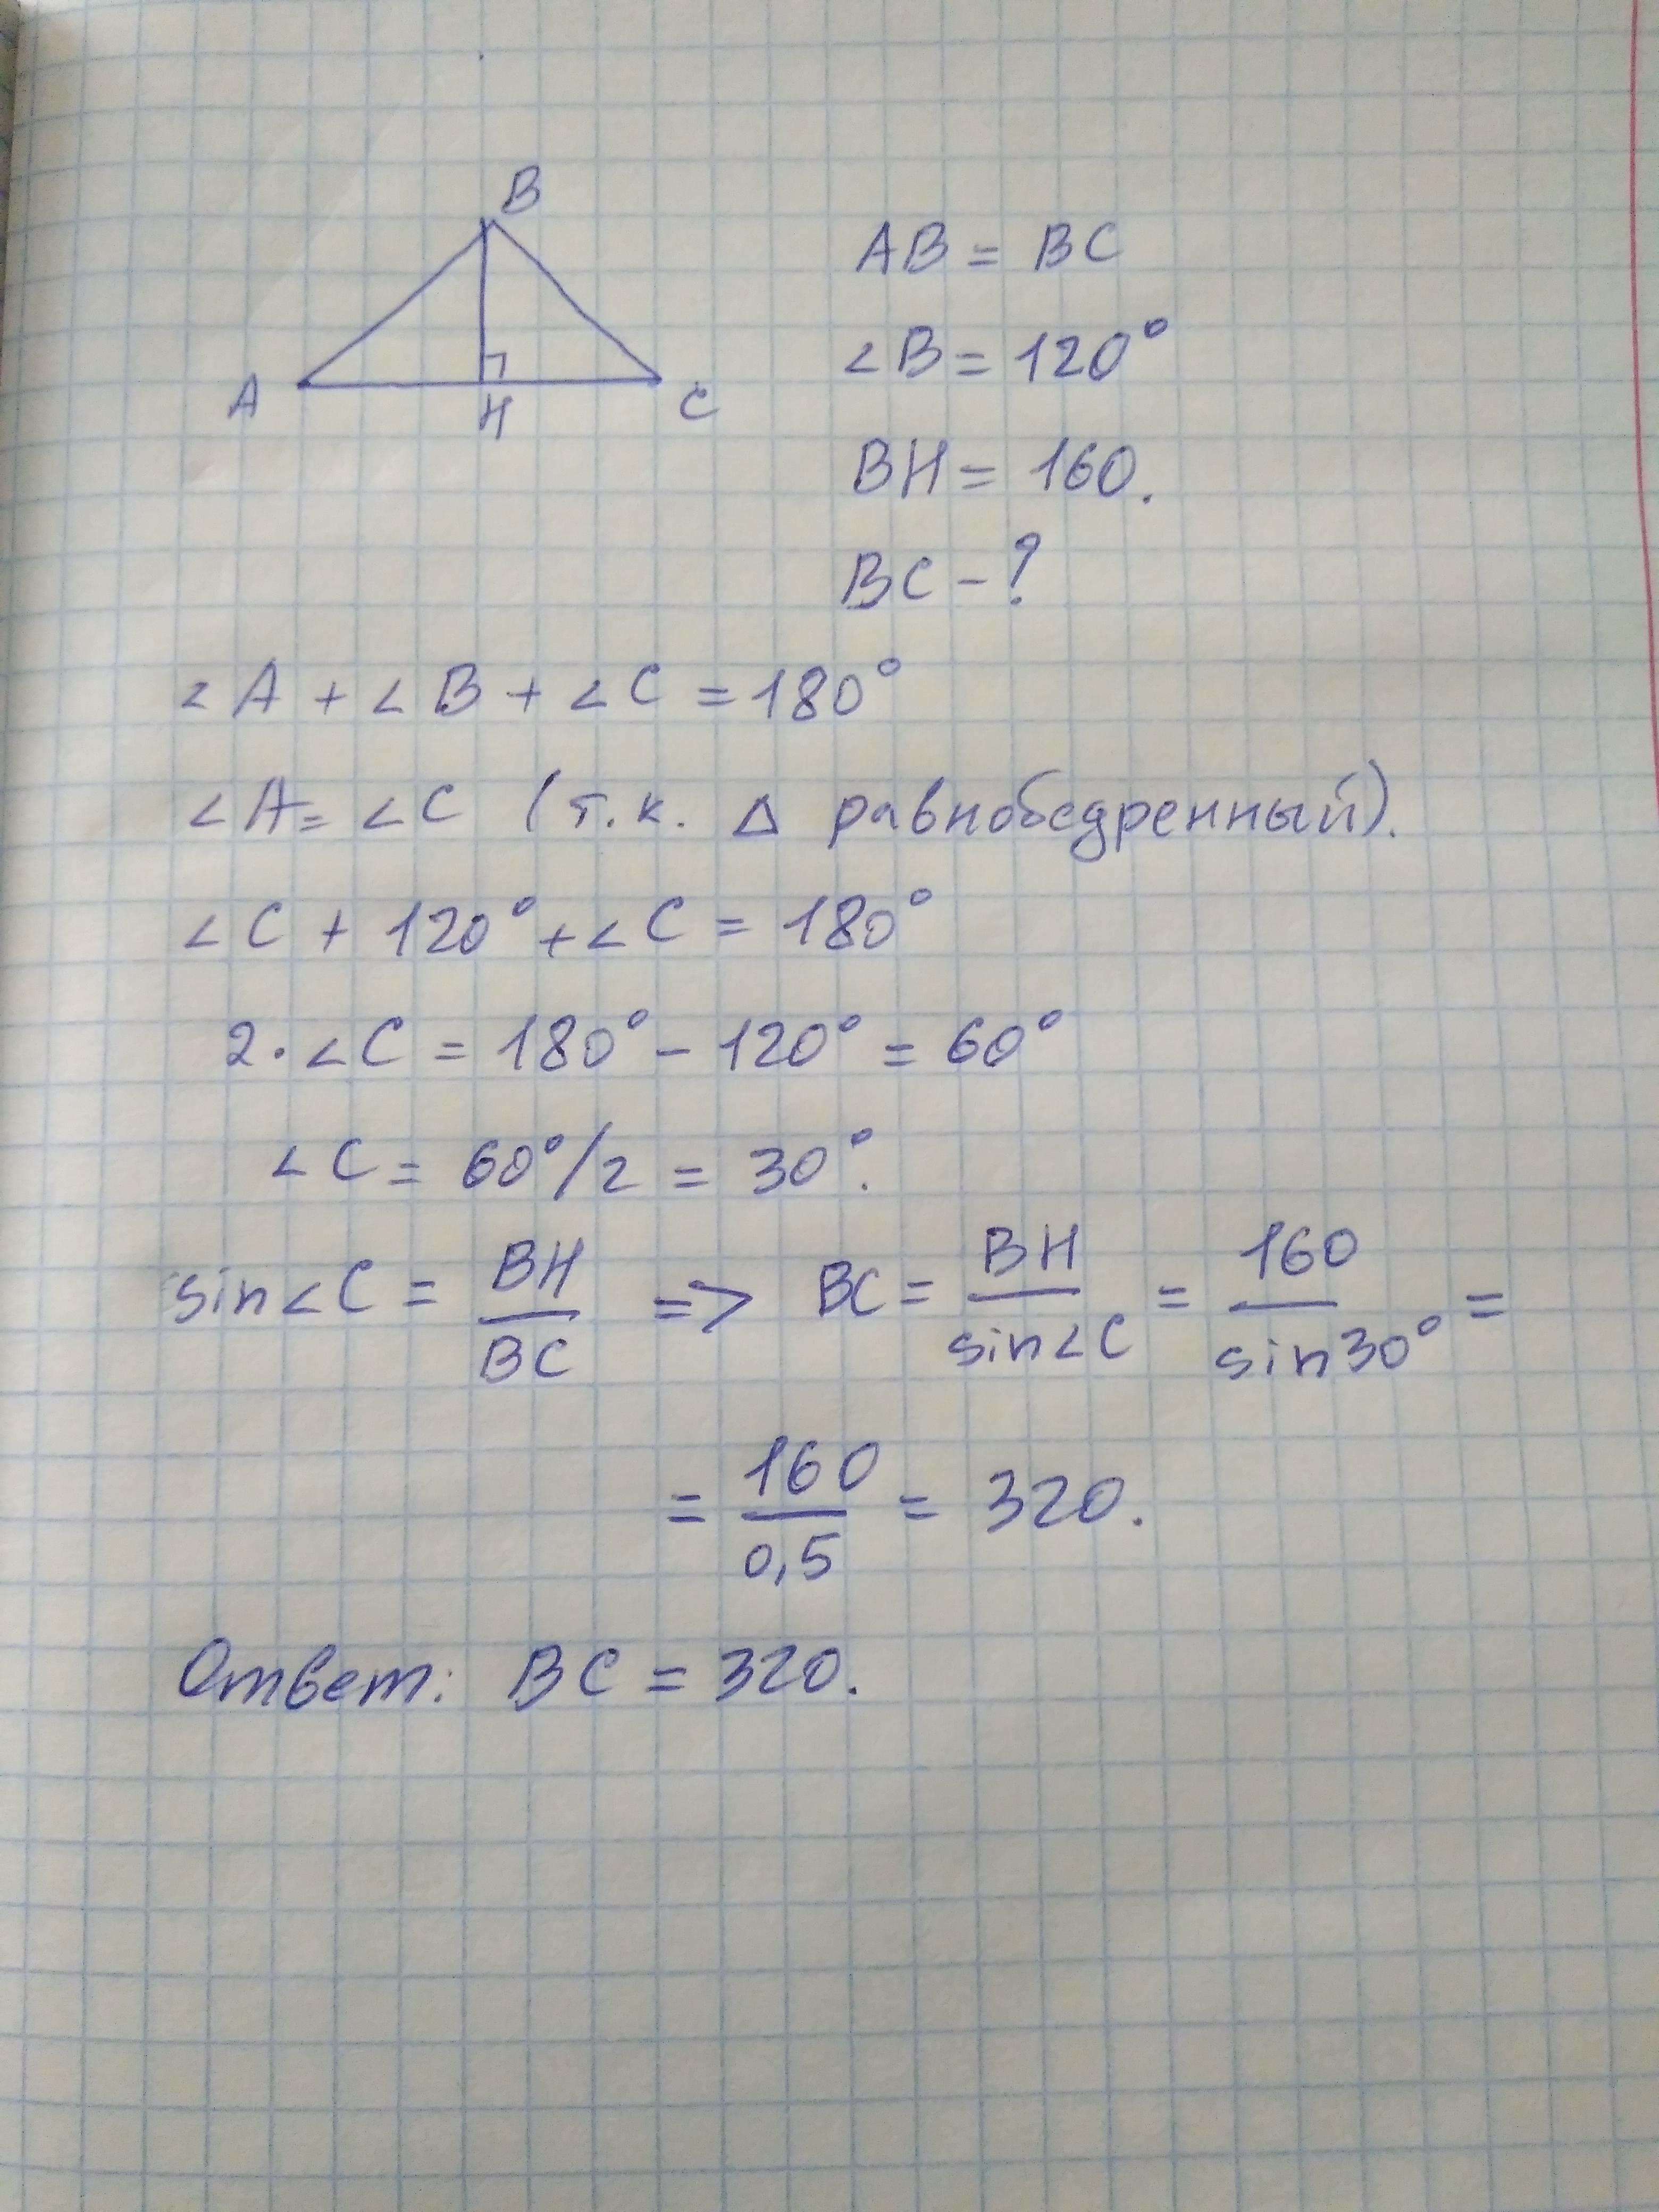 B
A
H
C
AB = BC
∠B = 120°
BH = 160.
BC - ?
∠A + ∠B + ∠C = 180°
∠A = ∠C (т.к. Δ равнобедренный).
∠C + 120° + ∠C = 180°
2 · ∠C = 180° - 120° = 60°
∠C = 60°/2 = 30°.
sin∠C = BH/BC => BC = BH/sin∠C = 160/sin30° =
= 160/0,5 = 320.
Ответ: BC = 320.